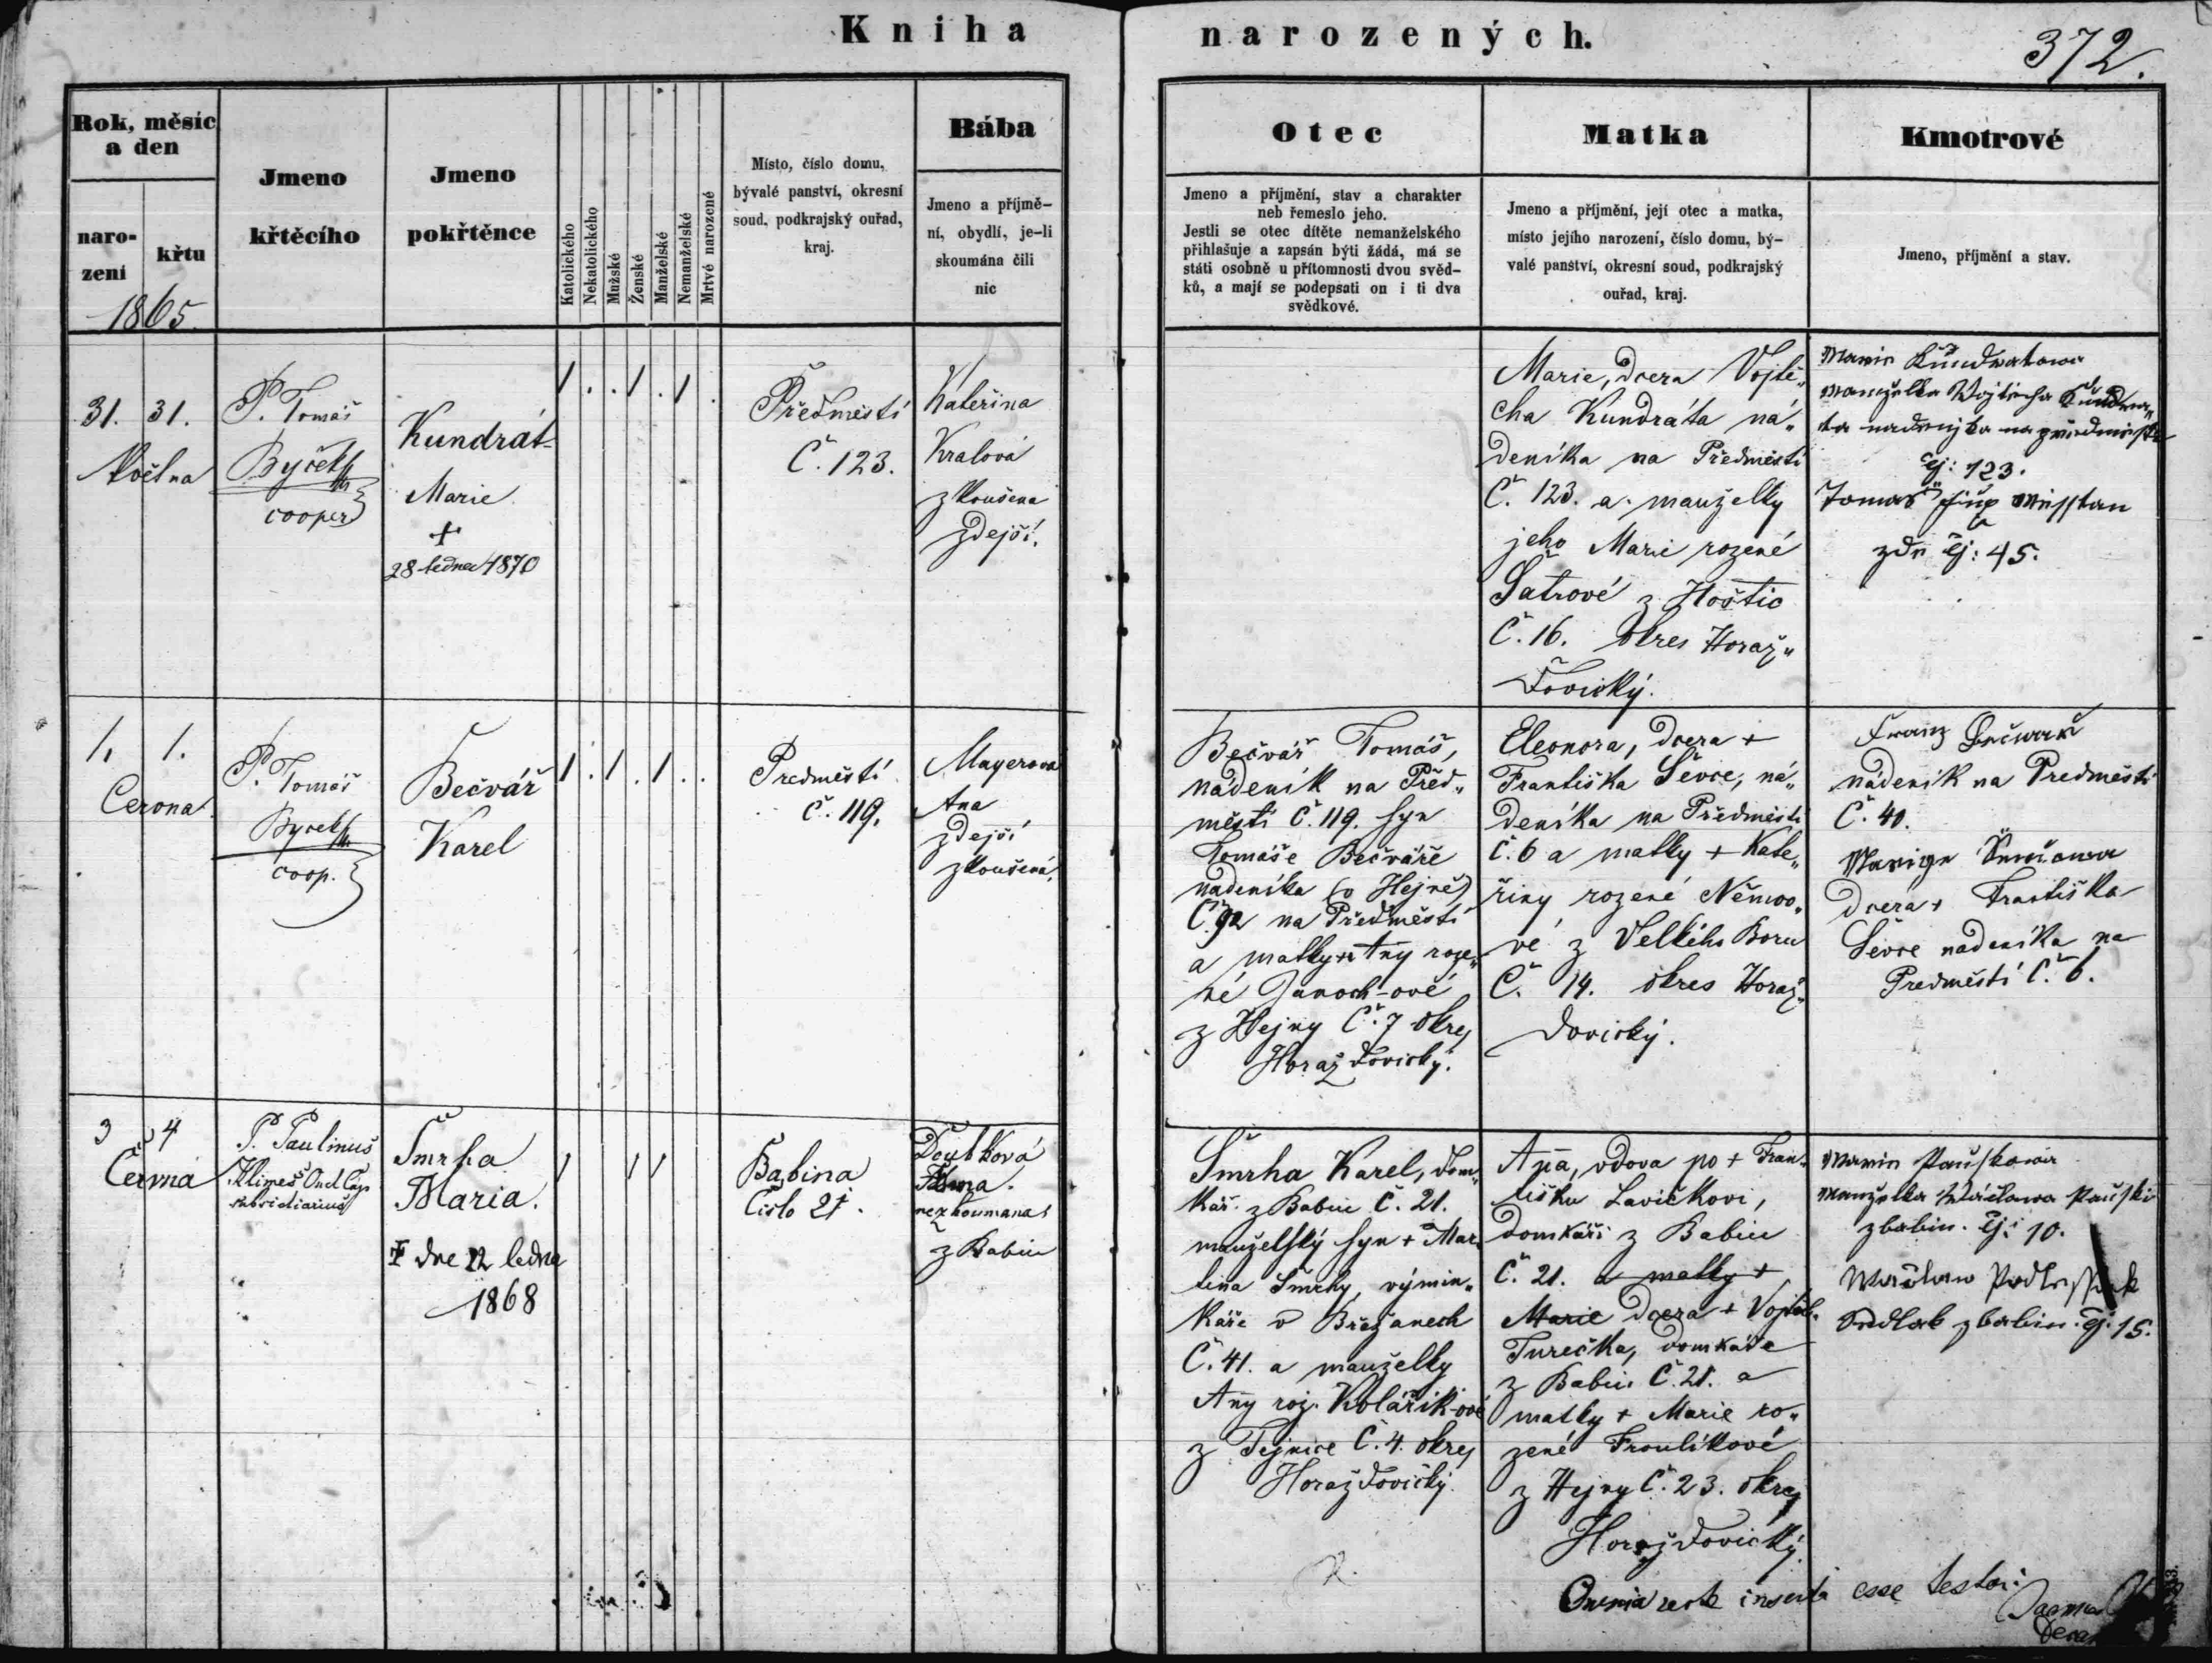 Kniha narozených.
372.
Rok, měsíc
a den
naro-
zení
křtu
1865.
Jmeno
křtěcího
Jmeno
pokřtěnce
Katolického
Nekatolického
Mužské
Ženské
Manželské
Nemanželské
Mrtvé narozené
Místo, číslo domu,
bývalé panství, okresní
soud, podkrajský ouřad,
kraj.
Bába
Jmeno a příjmě-
ní, obydlí, je-li
skoumána čili
nic
Otec
Jmeno a příjmění, stav a charakter
neb řemeslo jeho.
Jestli se otec dítěte nemanželského
přihlašuje a zapsán býti žádá, má se
státi osobně u přítomnosti dvou svěd-
ků, a mají se podepsati on i ti dva
svědkové.
Matka
Jmeno a příjmění, její otec a matka,
místo jejího narození, číslo domu, bý-
valé panství, okresní soud, podkrajský
ouřad, kraj.
Kmotrové
Jmeno, příjmění a stav.
31. 31.
Května
P. Tomáš
Byček
cooper
Kundrát
Marie
+
28 ledna 1870
1 . . 1 . 1 .
Předměstí
Č. 123.
Kateřina
Kralová
zkoušená
zdejší.
Marie, dcera Vojtě„
cha Kundráta ná„
deníka na Předměstí
Č. 123. a manželky
jeho Marie rozené
Šatrové z Hoštic
Č. 16. okres Horaž„
ďovický.
Marie Kundratowa
manželka Wojtěcha Kundra„
ta nadenjka na předměstí
čj: 123.
Tomáš
zde čj: 45.
1. 1.
Června
P. Tomáš
Byček
coop.
Bečvář
Karel
1 . 1 . 1 . .
Predměstí
č. 119.
Mayerová
Ana
zdejší
zkoušená.
Bečvář Tomáš,
nádeník na Před„
městí Č. 119. syn
Tomáše Bečváře
nadeníka (v Hejně)
Č. 92 na Předměstí
a matky + Any roze„
né Janoch-ové
z Hejny Č. 7 okres
Horažďovický.
Eleonora, dcera +
Františka Ševce, ná„
deníka na Předměstí
č. 6 a matky + Kate„
řiny rozené Němco„
vé z Velkého Boru
Č. 14. okres Horaž„
ďovický.
Franz Bečwař
nádeník na Predměstí
Č. 40.
dcera + Františka
Ševce nadeníka na
Predměstí Č. 6.
3 4
Června
P. Paulinus
Klimeš Ord. Cap.
subsidiarius
Šmrha
Maria.
+ dne 22 ledna
1868
1 1 1
Babina
Číslo 21.
nezkoumana
z Babin
Šmrha Karel, dom„
kář z Babin Č. 21.
manželský syn + Mar„
tina Šmrhy, výmin„
káře v Břežanech
Č. 41. a manželky
Any roz. Kolářik-ové
z Tejnice Č. 4. okres
Horažďovický.
Ana, vdova po + Fran„
tišku Lavičkovi,
domkáři z Babin
Č. 21. a matky +
Marie dcera + Vojtěc.
Turečka, domkáře
z Babin Č. 21. a
matky + Marie ro„
zené Froulíkové
z Hejny Č. 23. okres
Horažďovický.
Marie Pauškowa
manželka Wáclawa Paušk
z babin. čj: 10.
Wáclaw
Sedlak z babin. čj. 15.
Omnia recte inserta esse testor: